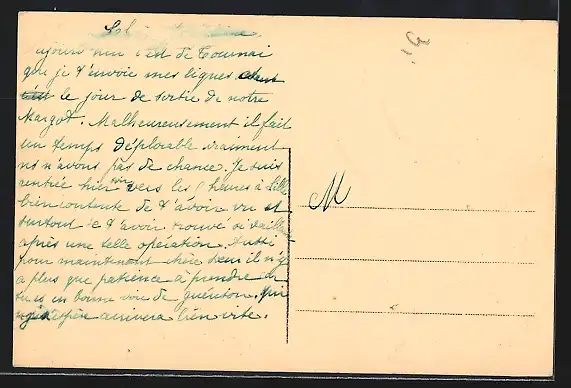 aujourd'hui c'est de Tournai
que je t'envoie mes lignes
c'est le jour de sortie de notre
Margot. Malheureusement il fait
un temps déplorable vraiment
ns n'avons pas de chance. Je suis
rentrée hier soir vers les heures à Lille
bien contente de t'avoir vu et
surtout de t'avoir trouvé si vaillant
après une telle opération. Aussi
pour maintenant chère sœur il n'y
a plus que patience à prendre car
tu es en bonne voie de guérison. qui
j'espère arrivera bien vite.
M